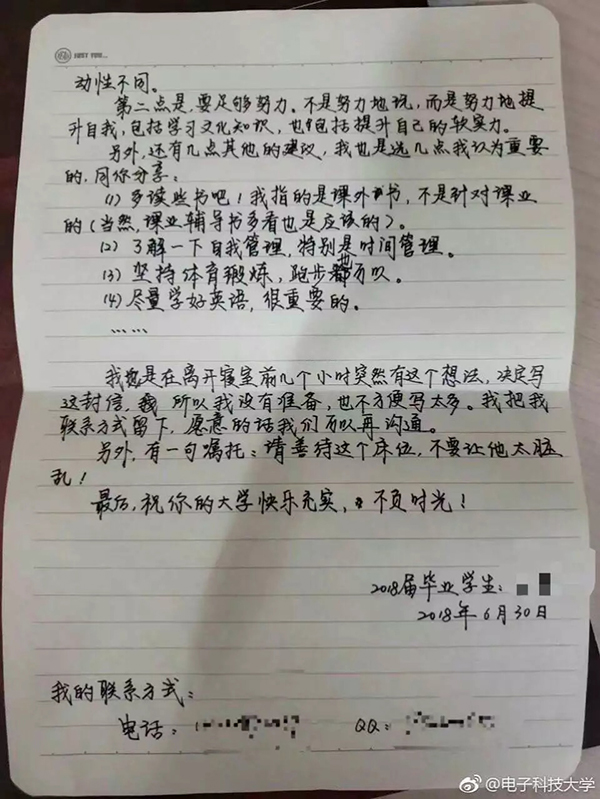 动性不同。
第二点是,要足够努力。不是努力地玩,而是努力地提
升自我,包括学习文化知识,也包括提升自己的软实力。
另外,还有几点其他的建议,我也是选几点我认为重要
的,同你分享:
(1) 多读些书吧!我指的是课外书,不是针对课业
的(当然,课业辅导书多看也是应该的)。
(2) 了解一下自我管理,特别是时间管理。
(3) 坚持体育锻炼,跑步也可以。
(4) 尽量学好英语,很重要的。
……
我也是在离开寝室前几个小时突然有这个想法,决定写
这封信,所以我没有准备,也不方便写太多。我把我
联系方式留下,愿意的话我们可以再沟通。
另外,有一句嘱托:请善待这个床位,不要让他太脏
乱!
最后,祝你的大学快乐充实,不负时光!
2018届毕业学生:
2018年6月30日
我的联系方式:
电话: QQ:
@电子科技大学